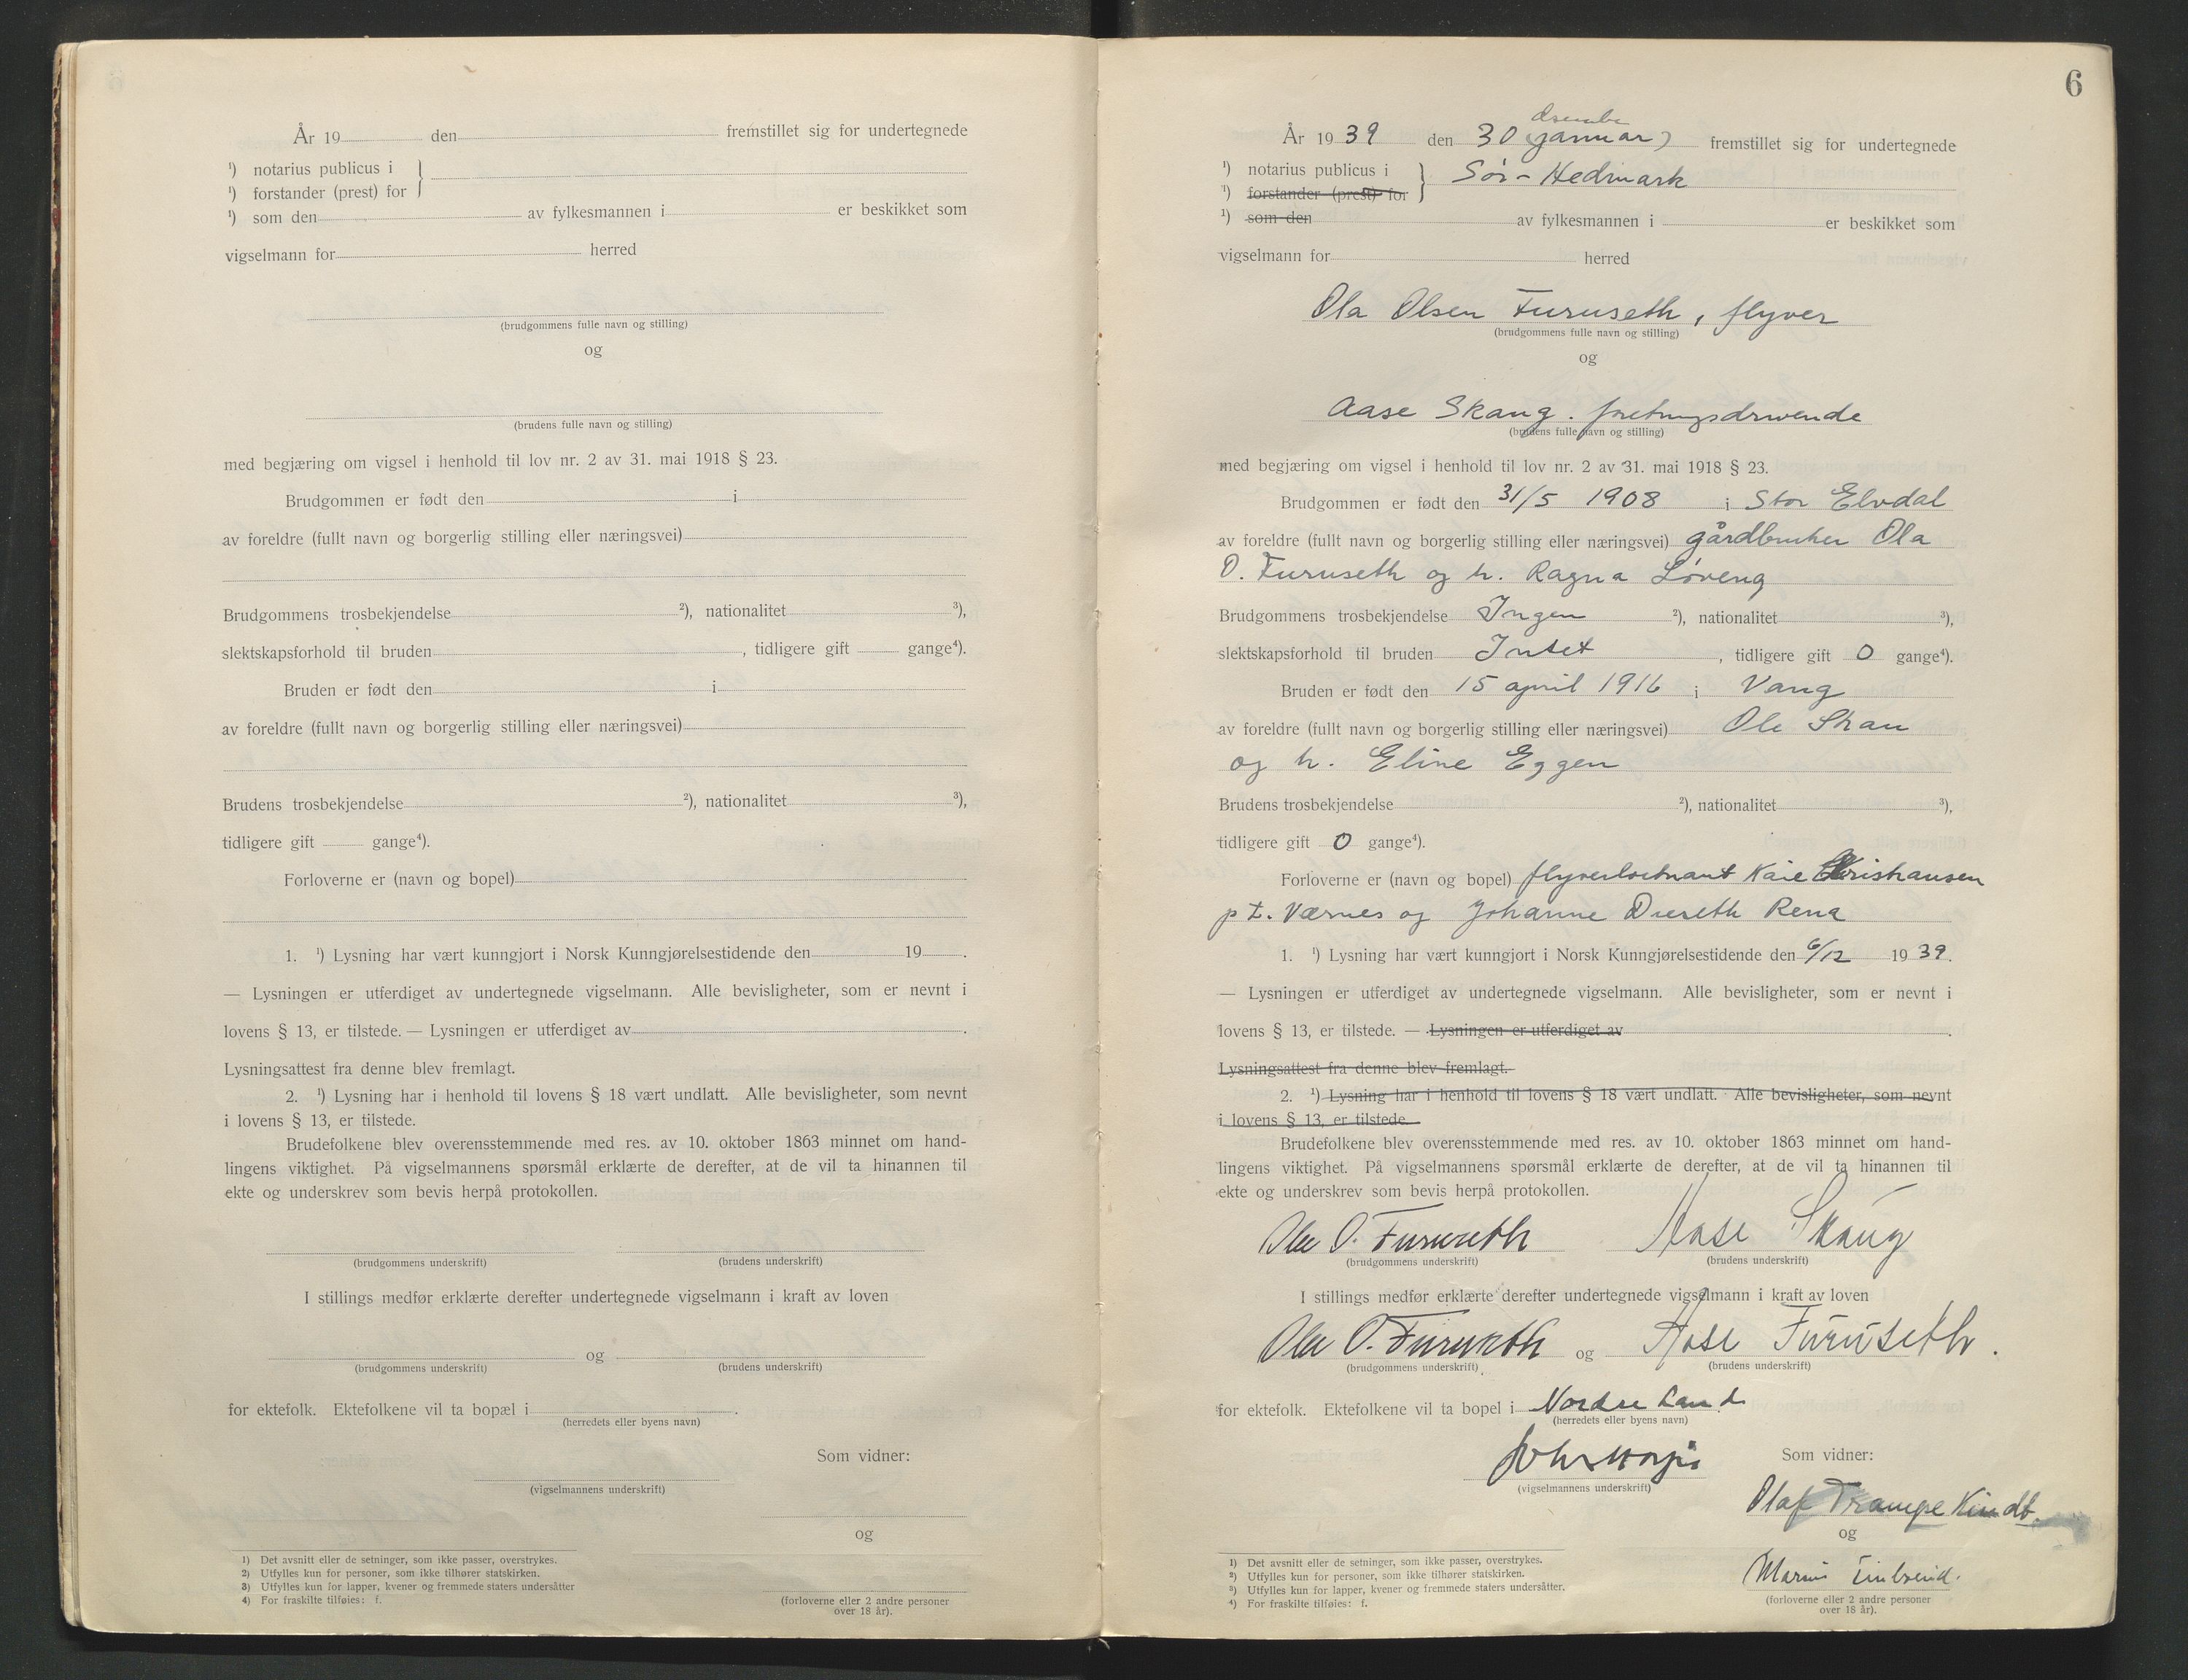 År 19 den fremstillet sig for undertegnede
¹) notarius publicus i
¹) forstander (prest) for
¹) som den av fylkesmannen i er beskikket som
vigselmann for herred
(brudgommens fulle navn og stilling)
og
(brudens fulle navn og stilling)
med begjæring om vigsel i henhold til lov nr. 2 av 31. mai 1918 § 23.
Brudgommen er født den i
av foreldre (fullt navn og borgerlig stilling eller næringsvei)
Brudgommens trosbekjendelse ²), nationalitet ³),
slektskapsforhold til bruden , tidligere gift gange⁴).
Bruden er født den i
av foreldre (fullt navn og borgerlig stilling eller næringsvei)
Brudens trosbekjendelse ²), nationalitet ³),
tidligere gift gange⁴).
Forloverne er (navn og bopel)
1. ¹) Lysning har vært kunngjort i Norsk Kunngjørelsestidende den 19 .
— Lysningen er utferdiget av undertegnede vigselmann. Alle bevisligheter, som er nevnt i
lovens § 13, er tilstede. — Lysningen er utferdiget av .
Lysningsattest fra denne blev fremlagt.
2. ¹) Lysning har i henhold til lovens § 18 vært undlatt. Alle bevisligheter, som nevnt
i lovens § 13, er tilstede.
Brudefolkene blev overensstemmende med res. av 10. oktober 1863 minnet om hand-
lingens viktighet. På vigselmannens spørsmål erklærte de derefter, at de vil ta hinannen til
ekte og underskrev som bevis herpå protokollen.
(brudgommens underskrift) (brudens underskrift)
I stillings medfør erklærte derefter undertegnede vigselmann i kraft av loven
og
(brudgommens underskrift) (brudens underskrift)
for ektefolk. Ektefolkene vil ta bopæl i .
(herredets eller byens navn)
Som vidner:
(vigselmannens underskrift)
og
¹) Det avsnitt eller de setninger, som ikke passer, overstrykes.
²) Utfylles kun for personer, som ikke tilhører statskirken.
³) Utfylles kun for lapper, kvener og fremmede staters undersåtter
⁴) For fraskilte tilføies: f.
(forloverne eller 2 andre personer
over 18 år).
6
År 19 39 den 30 (januar) fremstillet sig for undertegnede
¹) notarius publicus i
¹) forstander (prest) for
Sør-Hedmark
¹) som den av fylkesmannen i er beskikket som
vigselmann for herred
Ola Olsen Furuseth, flyver
(brudgommens fulle navn og stilling)
og
Aase Skaug. foretningsdrivende
(brudens fulle navn og stilling)
med begjæring om vigsel i henhold til lov nr. 2 av 31. mai 1918 § 23.
Brudgommen er født den 31/5 1908 i Stor Elvdal
av foreldre (fullt navn og borgerlig stilling eller næringsvei) gårdbruker Ola
O. Furuseth og h. Ragna Løveng
Brudgommens trosbekjendelse Ingen ²), nationalitet ³),
slektskapsforhold til bruden Intet , tidligere gift 0 gange⁴).
Bruden er født den 15 april 1916 i Vang
av foreldre (fullt navn og borgerlig stilling eller næringsvei) Ole Skau
og h. Eline Eggen
Brudens trosbekjendelse ²), nationalitet ³),
tidligere gift 0 gange⁴).
Forloverne er (navn og bopel) flyverloitnant Kaie Kristiansen
p t. Værnes og Johanne Dieseth Rena
1. ¹) Lysning har vært kunngjort i Norsk Kunngjørelsestidende den 6/12 19 39.
— Lysningen er utferdiget av undertegnede vigselmann. Alle bevisligheter, som er nevnt i
lovens § 13, er tilstede. — Lysningen er utferdiget av .
Lysningsattest fra denne blev fremlagt.
2. ¹) Lysning har i henhold til lovens § 18 vært undlatt. Alle bevisligheter, som nevnt
i lovens § 13, er tilstede.
Brudefolkene blev overensstemmende med res. av 10. oktober 1863 minnet om hand-
lingens viktighet. På vigselmannens spørsmål erklærte de derefter, at de vil ta hinannen til
ekte og underskrev som bevis herpå protokollen.
Ola O. Furuseth Aase Skaug
(brudgommens underskrift) (brudens underskrift)
I stillings medfør erklærte derefter undertegnede vigselmann i kraft av loven
Ola O. Furuseth og Aase Furuseth.
(brudgommens underskrift) (brudens underskrift)
for ektefolk. Ektefolkene vil ta bopel i Nordre Land.
(herredets eller byens navn)
Som vidner:
(vigselmannens underskrift)
Olaf Trampe Kindt.
og
¹) Det avsnitt eller de setninger, som ikke passer, overstrykes.
²) Utfylles kun for personer, som ikke tilhører statskirken.
³) Utfylles kun for lapper, kvener og fremmede staters undersåtter.
⁴) For fraskilte tilføies: f.
(forloverne eller 2 andre personer
over 18 år).